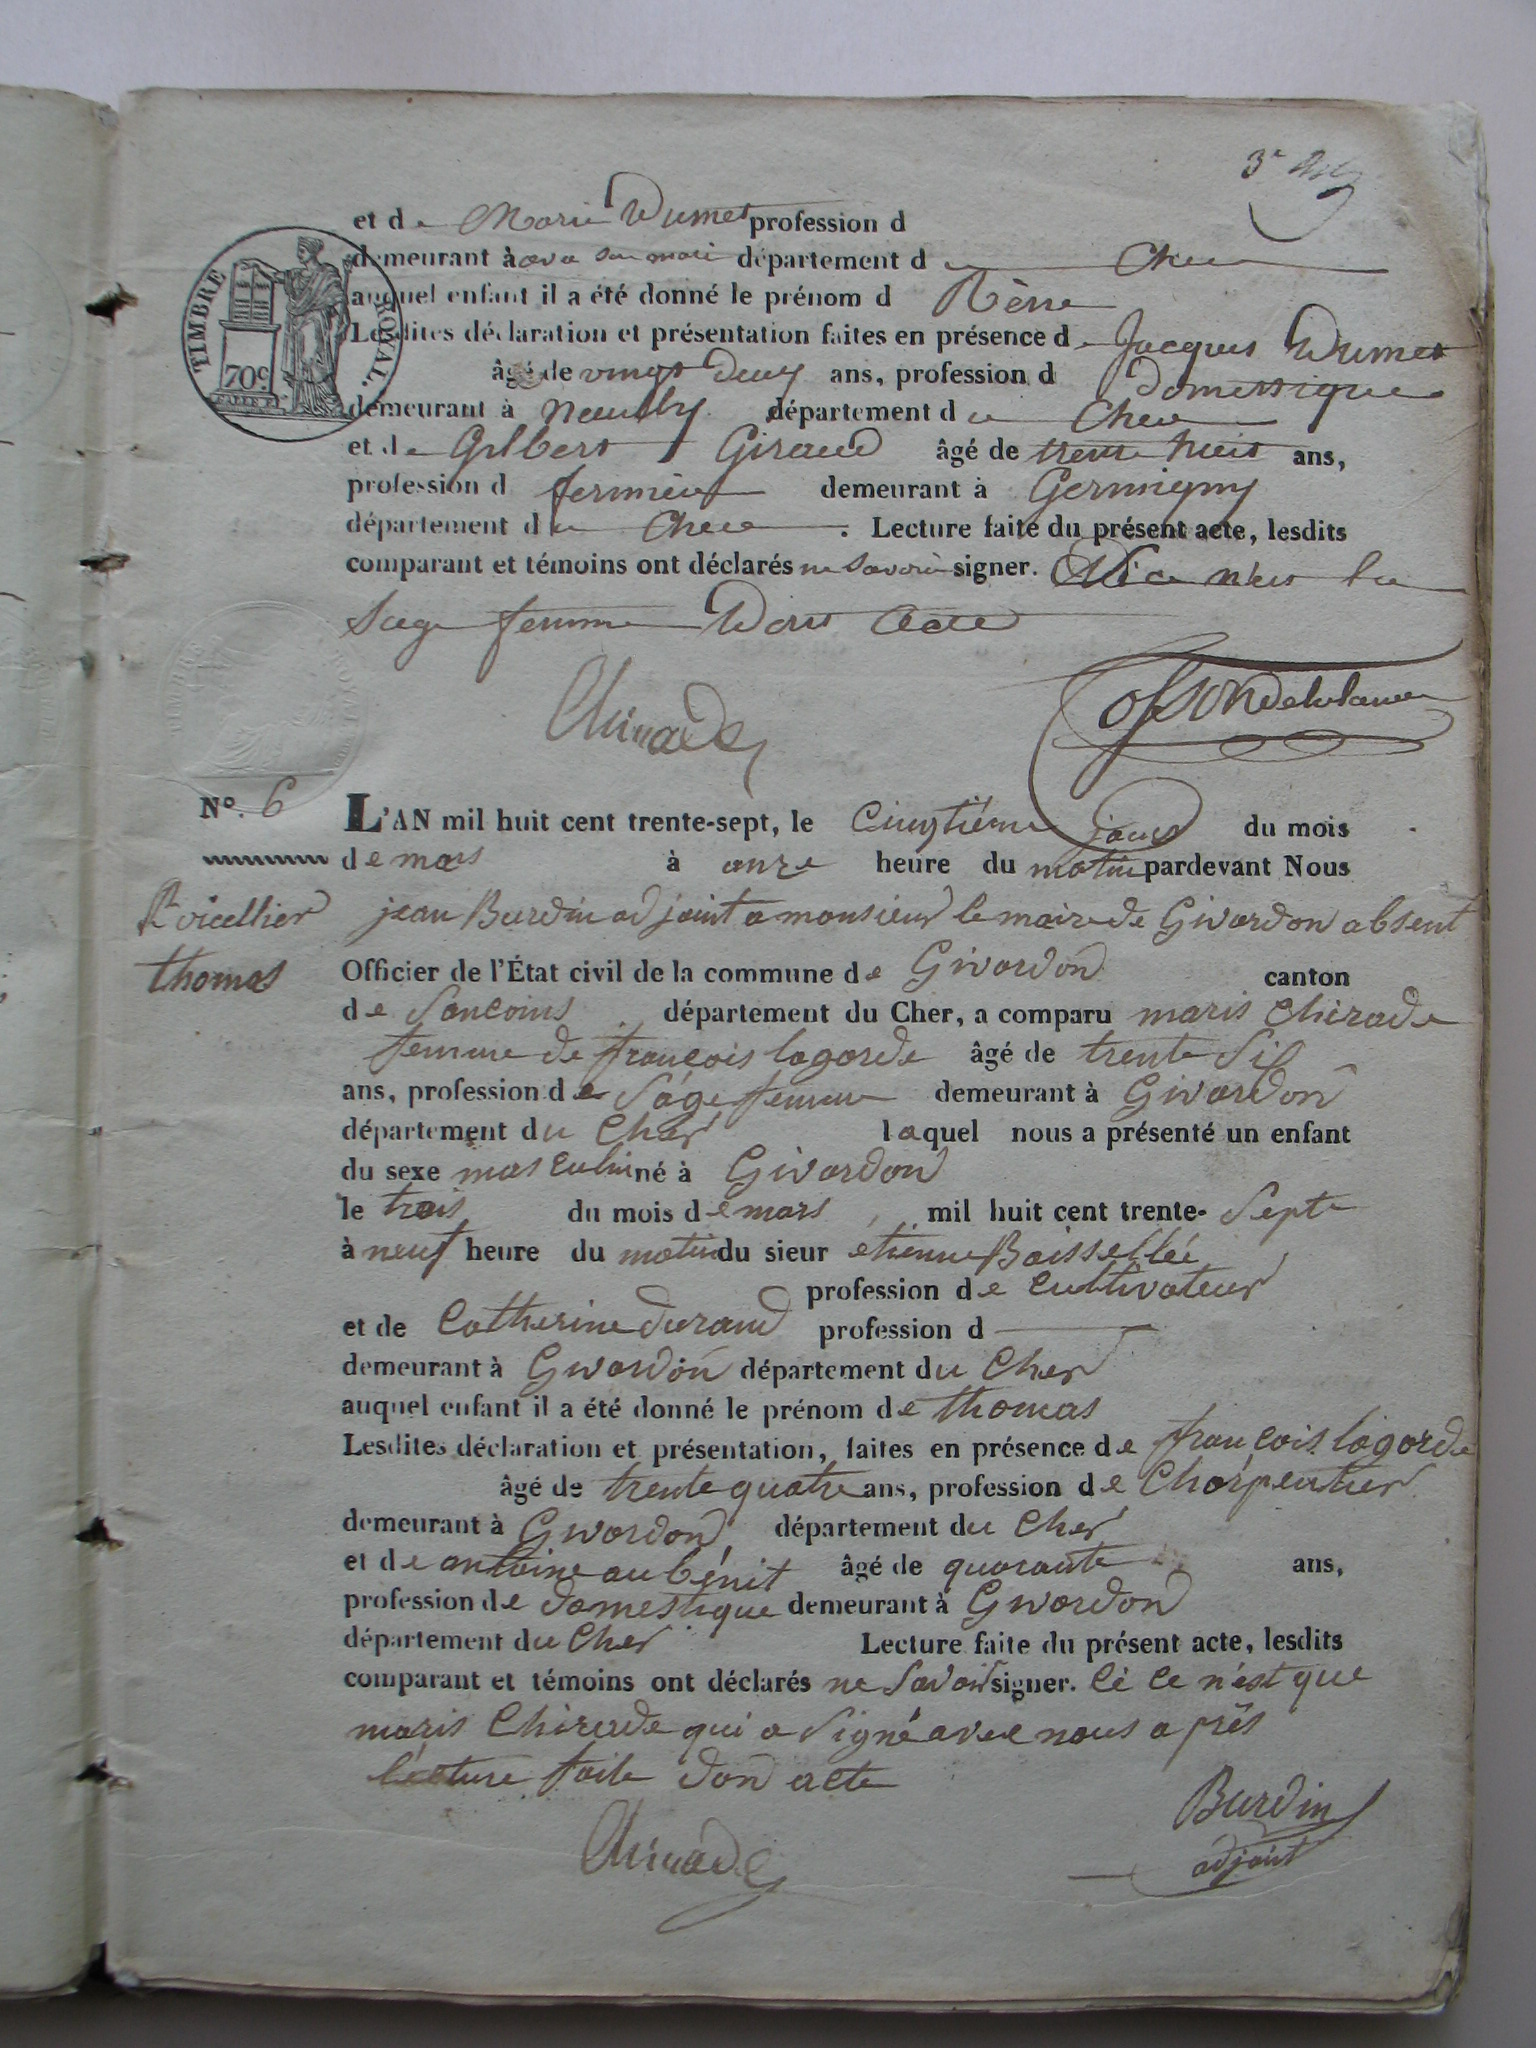 3e
et de Marie Dumet profession d
demeurant à avec son mari département du Cher
auquel enfant il a été donné le prénom d Rène
Lesdites déclaration et présentation faites en présence de Jacques Dumet
âgé de vingt deux ans, profession d domestique
demeurant à Neuilly département du Cher
et de Gilbert Giraud âgé de trente huit ans,
profession d fermier demeurant à Germigny
département du Cher. Lecture faite du présent acte, lesdits
comparant et témoins ont déclarés ne savoir signer. n'est la
Sage femme Dont Acte
TIMBRE ROYAL.
70c.
Chirade
No. 6
L'AN mil huit cent trente-sept, le Cinqtième jour du mois
de mars à onze heure du matin pardevant Nous
jean Burdin adjoint a monsieur le maire de Givardon absent
thomas
Officier de l'État civil de la commune de Givardon canton
de Sancoins département du Cher, a comparu maris Chirade
femme de françois lagorde âgé de trente Six
ans, profession de Sage femme demeurant à Givardon
département du Cher laquel nous a présenté un enfant
du sexe masculin né à Givardon
le trois du mois de mars mil huit cent trente- Sept
à neuf heure du matin du sieur étienne Boissellée
profession de Cultivateur
et de Catherine durand profession d
demeurant à Givardon département du Cher
auquel enfant il a été donné le prénom de thomas
Lesdites déclaration et présentation, faites en présence de françois lagorde
âgé de trente quatre ans, profession de Charpentier
demeurant à Givardon département du Cher
et de antoine aubénit âgé de quarante ans,
profession de domestique demeurant à Givardon
département du Cher Lecture faite du présent acte, lesdits
comparant et témoins ont déclarés ne Savoir signer. Cé Ce n'est que
maris Chirade qui a Signé avec nous a près
lecture faite don acte
Burdin
adjoint
Chirade